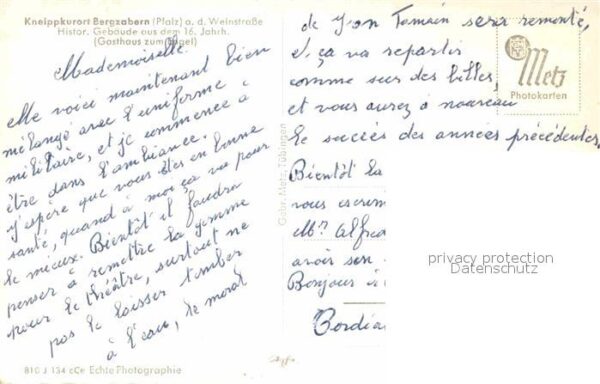 Kneippkurort Bergzabern (Pfalz) a. d. Weinstraße
Histor. Gebäude aus dem 16. Jahrh.
(Gasthaus zum Engel)
Mademoiselle
Me voici maintenant bien
mélangé avec l'uniforme
militaire, et je commence à
être dans l'ambiance.
J'espère que vous êtes en bonne
santé, quand à moi ça va pour
le mieux. Bientôt il faudra
penser à remettre la gomme
pour le théâtre, surtout ne
pas le laisser tomber
à l'eau, le moral
810 J 134 cCe Echte Photographie
Gebr. Metz, Tübingen
de Yvon Tamain sera remonté,
et ça va repartir
comme sur des billes,
et vous aurez à nouveau
le succès des années précédentes.
Bientôt la
vous
Mr Alfred
avoir son
Bonjour à
Metz
Photokarten
privacy protection
Datenschutz